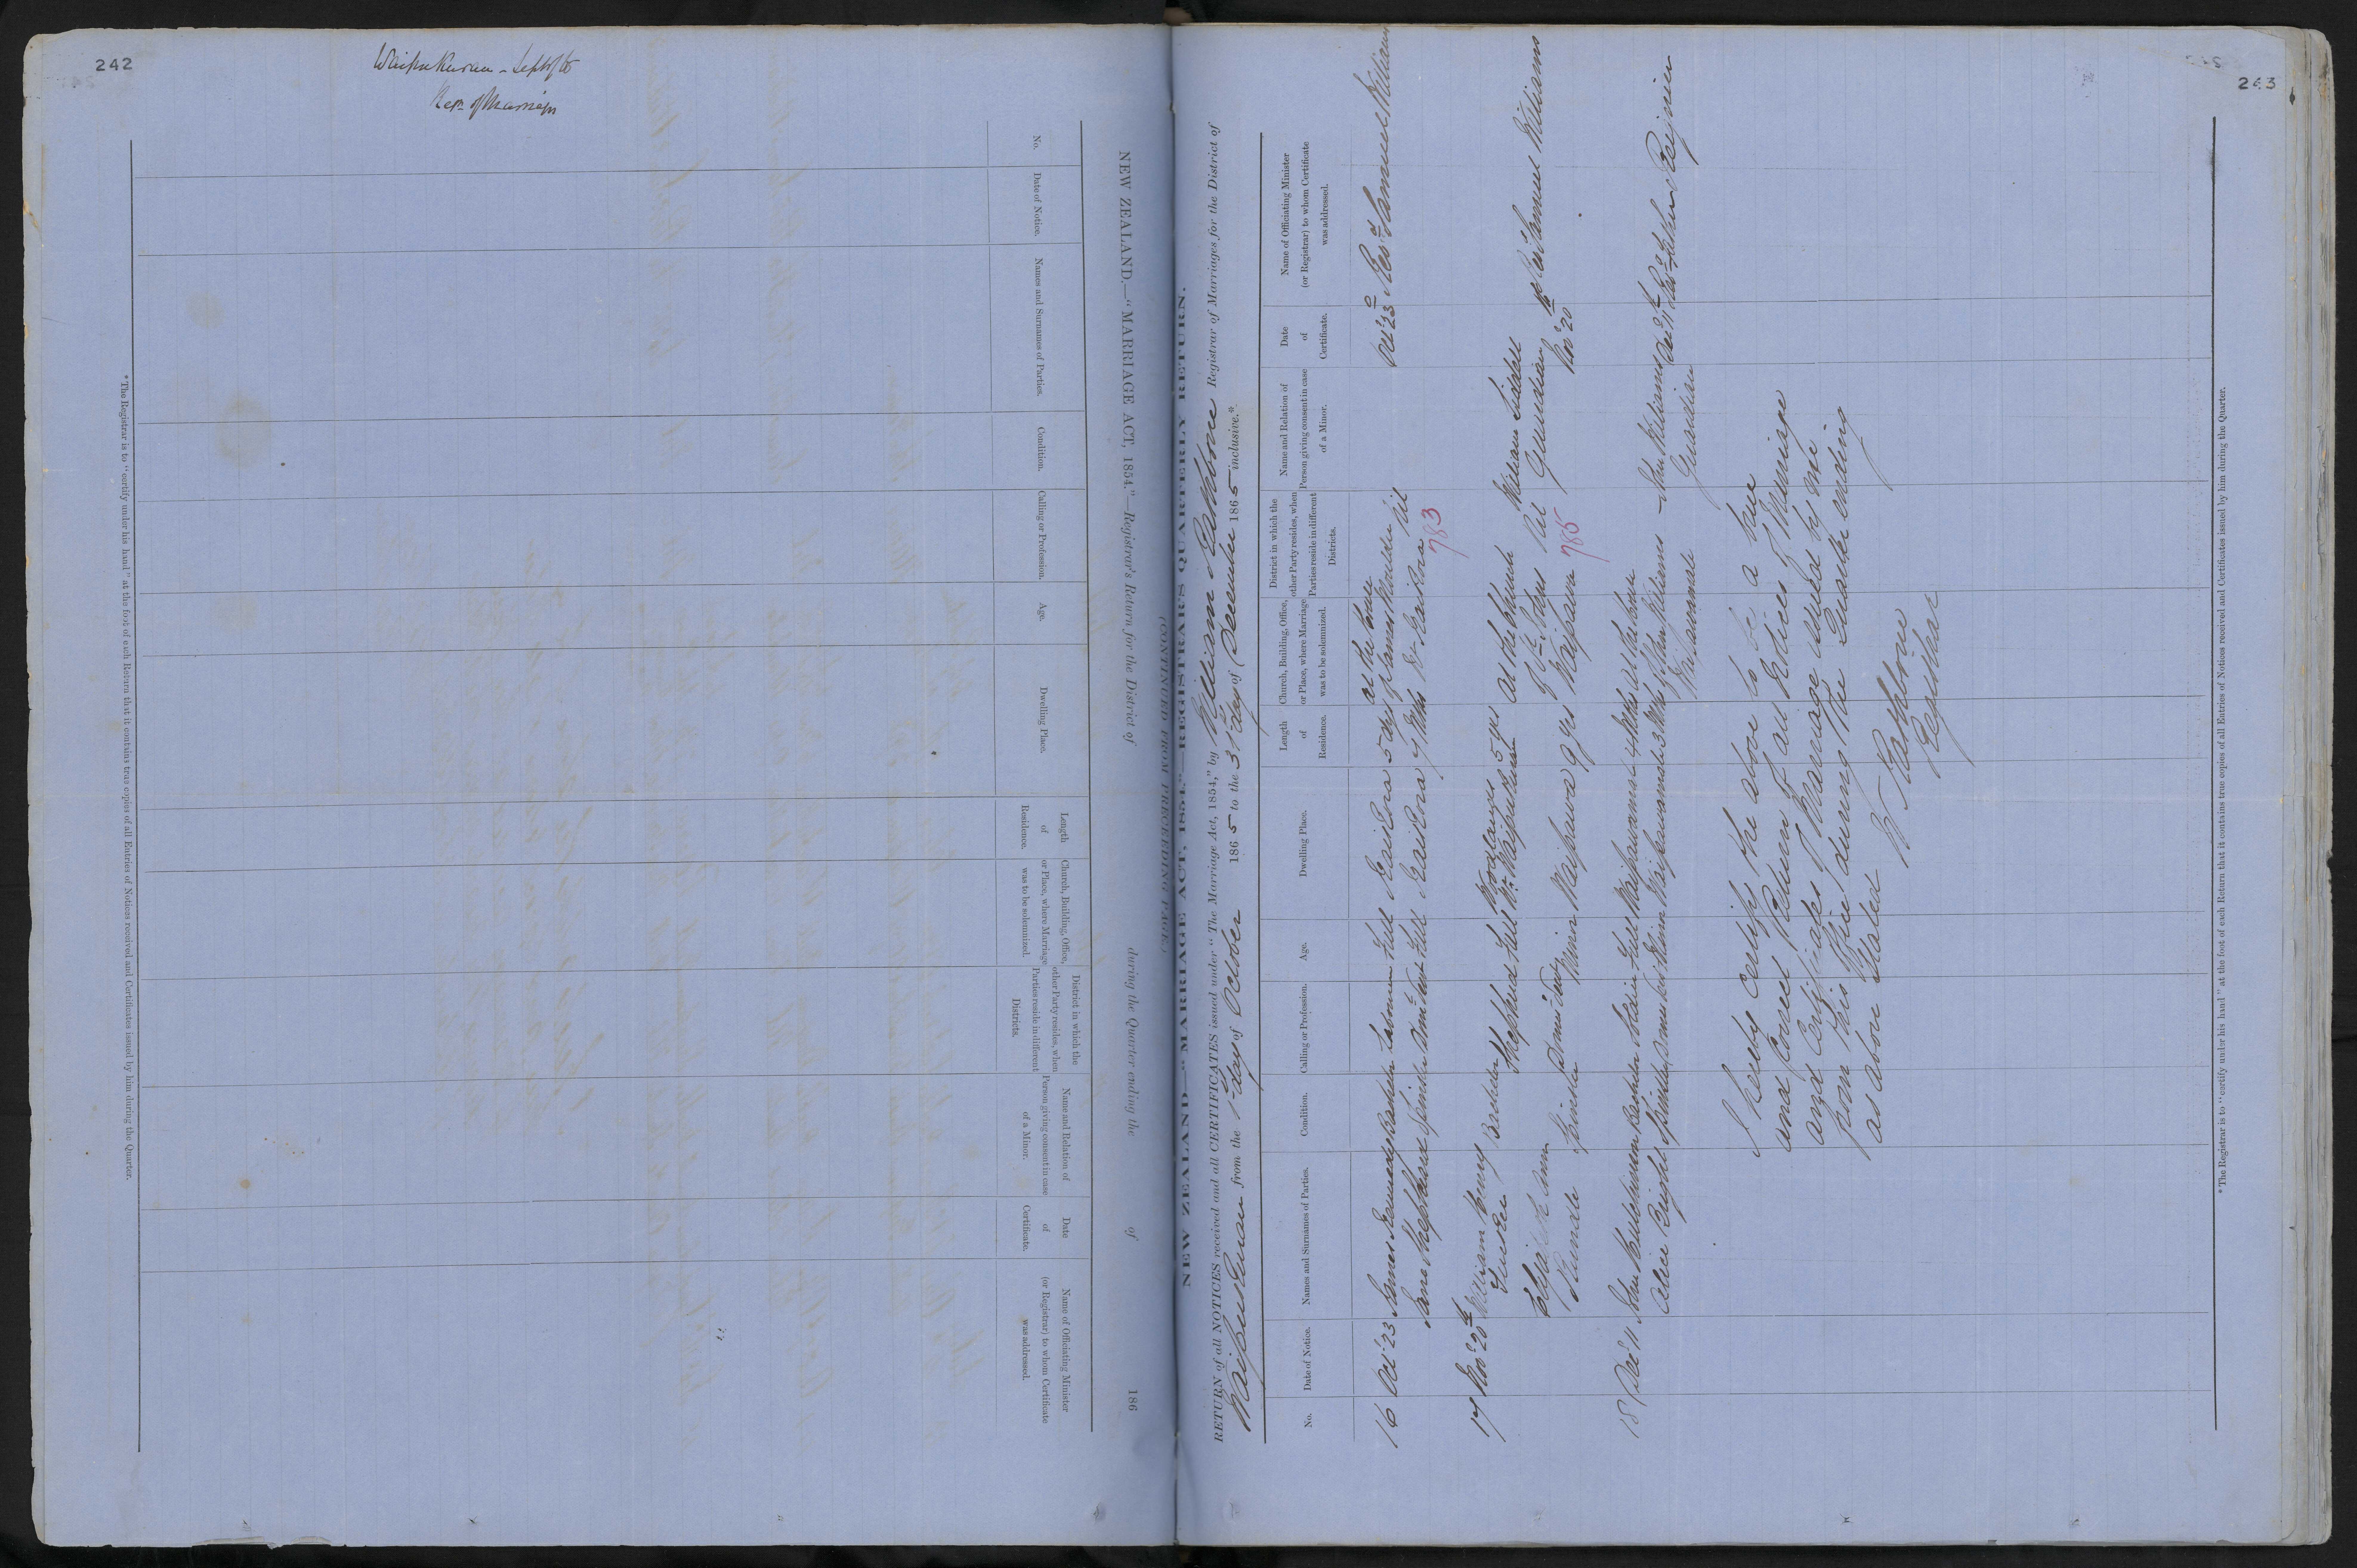 242
Waipukurau - Sept/65
Retn of Marriages
NEW ZEALAND.—"MARRIAGE ACT, 1854."—Registrar's Return for the District of during the Quarter ending the of 186
(CONTINUED FROM PRECEEDING PAGE.)
No.
Date of Notice.
Names and Surnames of Parties.
Condition.
Calling or Profession.
Age.
Dwelling Place.
Length of Residence.
Church, Building, Office, or Place, where Marriage was to be solemnized.
District in which the other Party resides, when Parties reside in different Districts.
Name and Relation of Person giving consent in case of a Minor.
Date of Certificate.
Name of Officiating Minister (or Registrar) to whom Certificate was addressed.
* The Registrar is to "certify under his hand" at the foot of each Return that it contains true copies of all Entries of Notices received and Certificates issued by him during the Quarter.
243
NEW ZEALAND—"MARRIAGE ACT, 1854."—REGISTRAR'S QUARTERLY RETURN.
RETURN of all NOTICES received and all CERTIFICATES issued under "The Marriage Act, 1854," by William Rathbone Registrar of Marriages for the District of
Waipukurau from the 1st day of October 1865 to the 31st day of December 1865 inclusive.*
No.
Date of Notice.
Names and Surnames of Parties.
Condition.
Calling or Profession.
Age.
Dwelling Place.
Length of Residence.
Church, Building, Office, or Place, where Marriage was to be solemnized.
District in which the other Party resides, when Parties reside in different Districts.
Name and Relation of Person giving consent in case of a Minor.
Date of Certificate.
Name of Officiating Minister (or Registrar) to whom Certificate was addressed.
at the house
16 Oct 23 James Bachelor Full Kaikora 5 days of James Nil Oct 23 Revd Samuel Williams
Jane Sheppard Spinster Full Kaikora Kaikora
783
17 Nov 20th William Henry Bachelor Shepherd Full Woodlands Nr Waipukurau 5 yrs At the Church William Liddell
Elizabeth Ann Rundle Spinster Minor Waipawa 9 yrs of St Johns Waipawa Nil Guardian Nov 20th Revd Samuel Williams
785
18 Dec 11 John Bachelor Full 4 at the house
Alice Knight Spinster Minor 3 of John Williams John Williams Guardian Dec 11th Revd Father Reignier
I hereby Certify the above to be a true
and Correct Return of all Notices of Marriage
and Certificates of Marriage issued by me
from this Office during the Quarter ending
as above stated
W Rathbone
Registrar
* The Registrar is to "certify under his hand" at the foot of each Return that it contains true copies of all Entries of Notices received and Certificates issued by him during the Quarter.